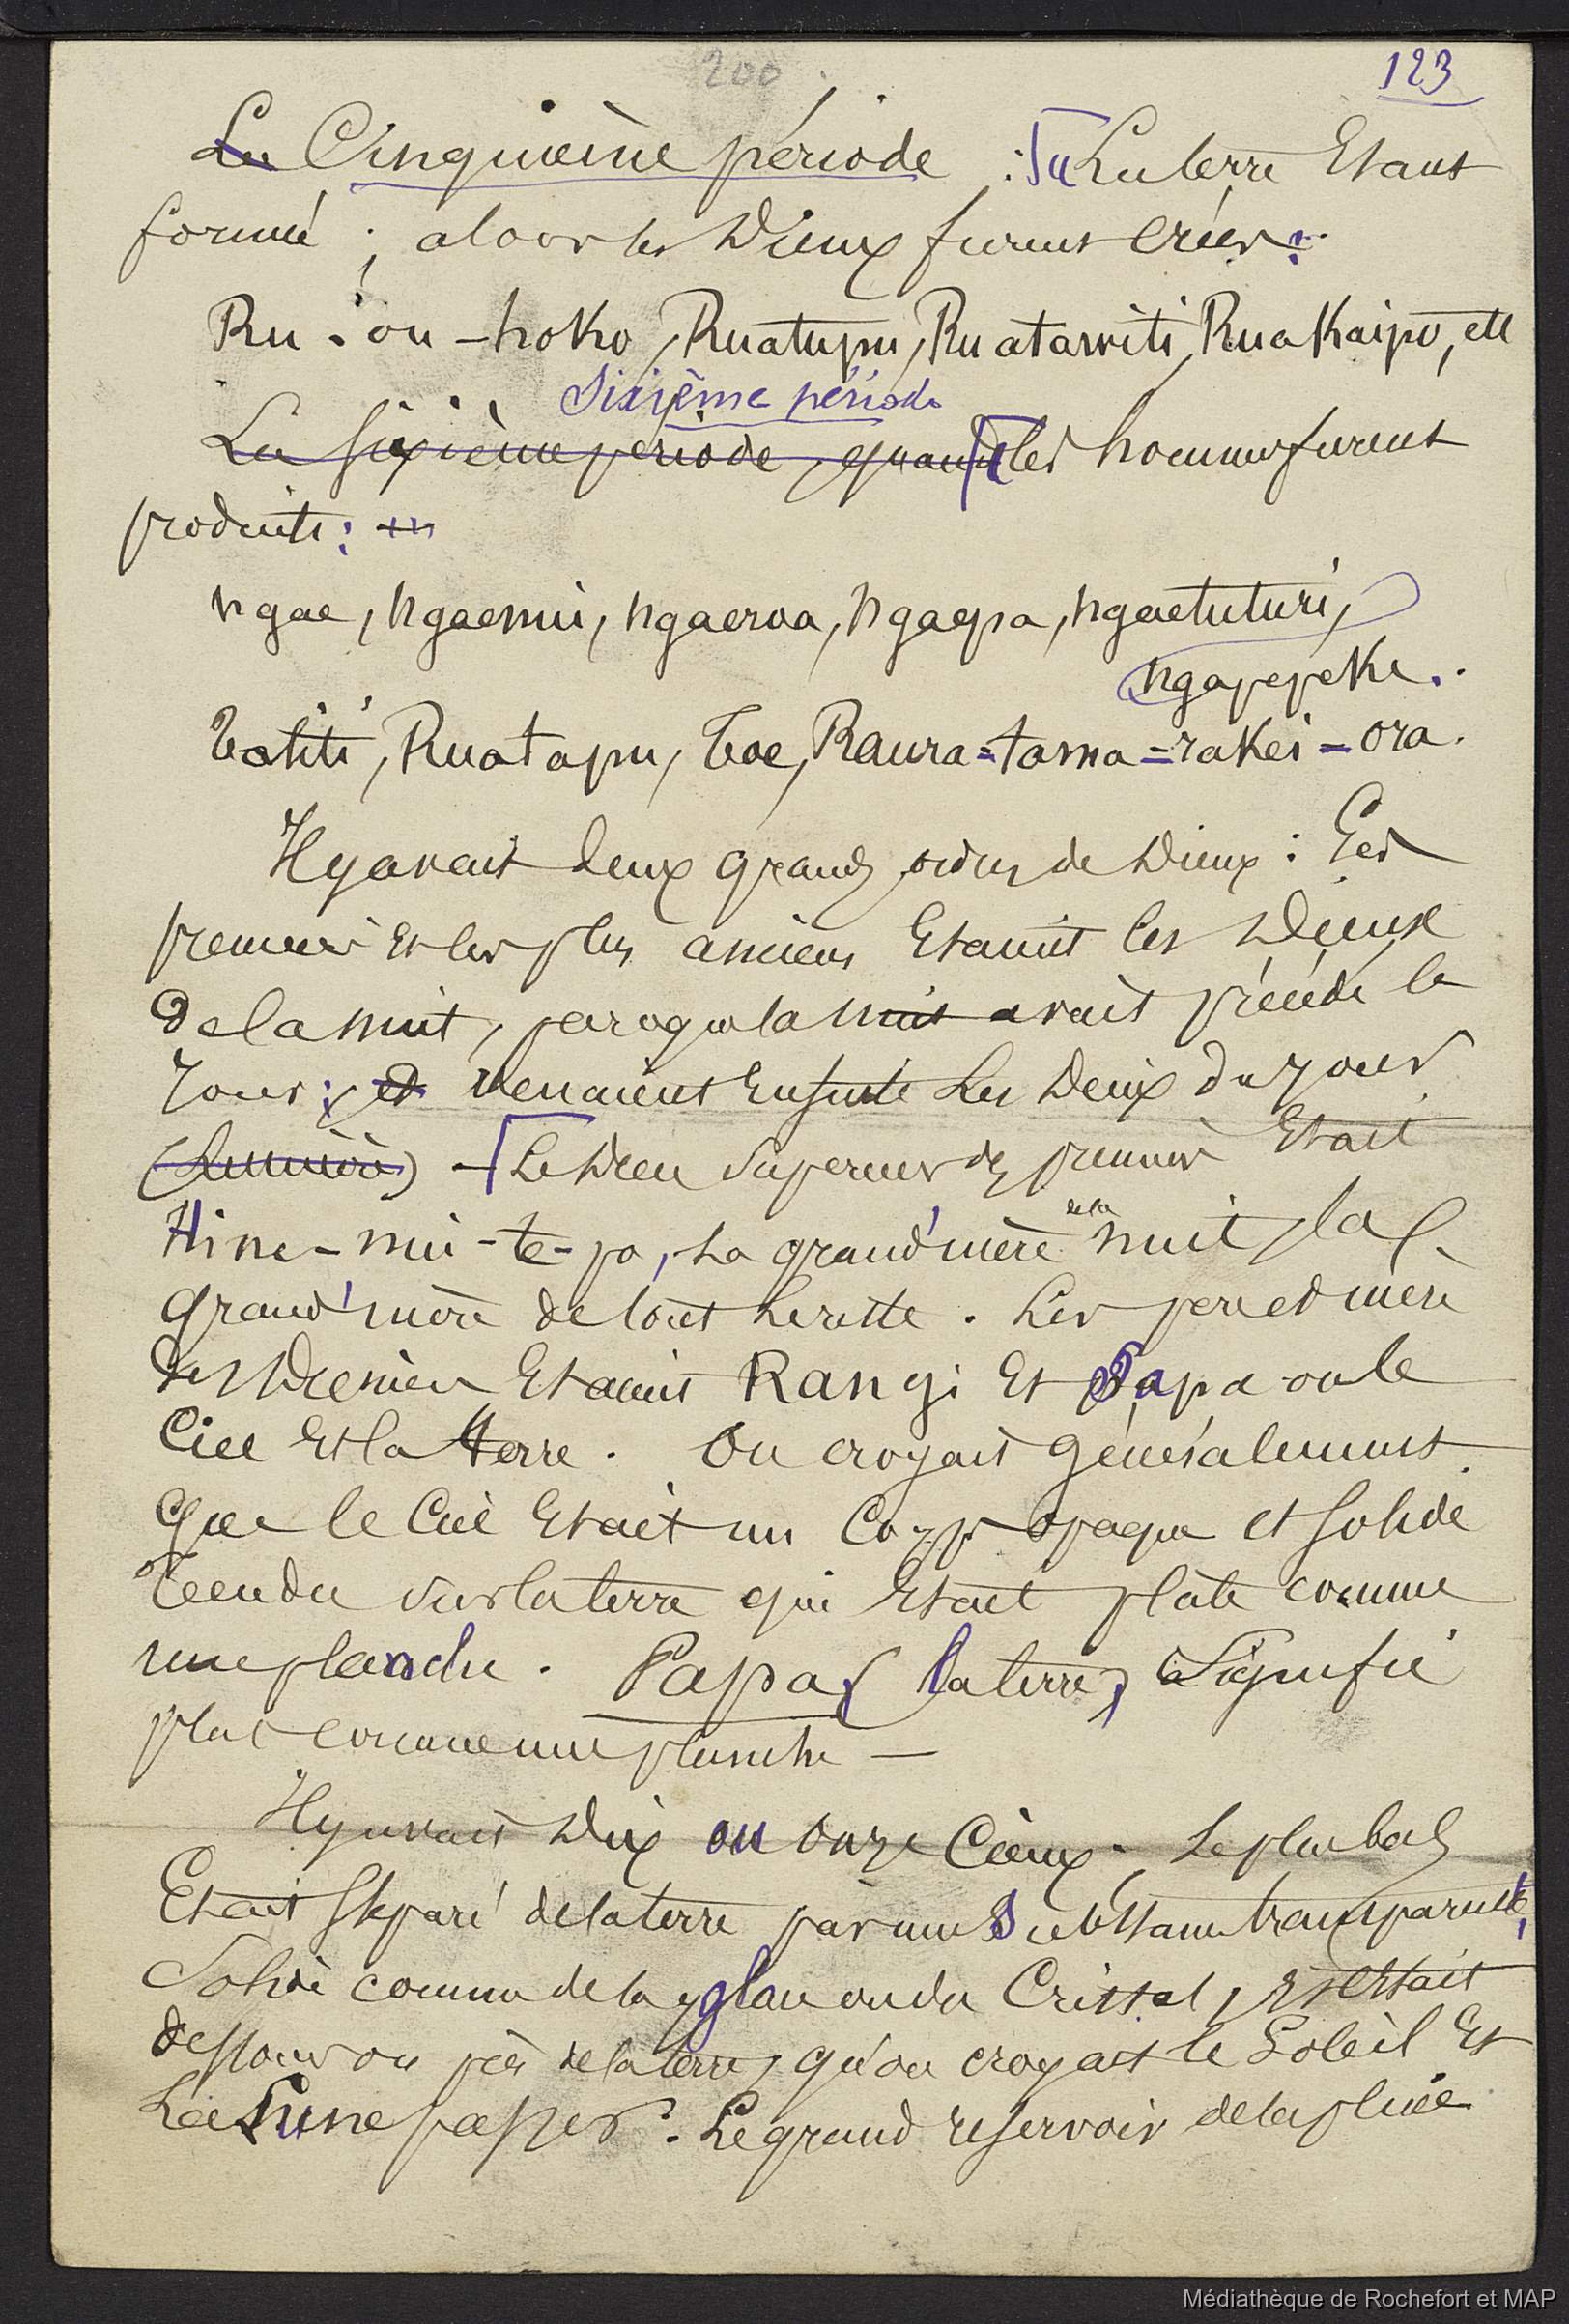 200
123
La Cinquième période : La terre Etant
formée ; alors les Dieux furent créés :
Ru - ou - hoko, Ruatupu, Ruatawiti, Ruakaipo, etc
Sixième période
La sixième période, quand les hommes furent
produits :
ngae, ngaenui, ngaeroa, ngaepa, ngaetuturi,
ngapepeke.
Totiti, Ruatapu, Toe, Raura=tama=rakei=ora.
Il y avait deux grands ordres de Dieux : Les
premiers et les plus anciens Etaient les Dieux
de la nuit, parce que la nuit avait précédé le
Jour ; et venaient Ensuite Les Dieux du jour
(Lumière) - Le Dieu Supérieur des premiers Etait
Hine-nui-te-po, la grand'mère de la nuit, la
grand'mère de tout le reste. Les père et mère
des Derniers Etaient Rangi Et Papa ou le
Ciel et la terre. On croyait généralement
que le Ciel Etait un Corps opaque et solide
étendu sur la terre qui Etait plate comme
une planche. Papa (la terre) Signifie
plat comme une planche —
Il y avait Dix ou onze Cieux. Le plus bas
Etait Séparé de la terre par une Substance transparente,
Solide comme de la glace ou du Cristal, et c'était
dessous ou près de la terre, qu'on croyait le Soleil Et
La Lune passer. Le grand réservoir de la pluie
Médiathèque de Rochefort et MAP